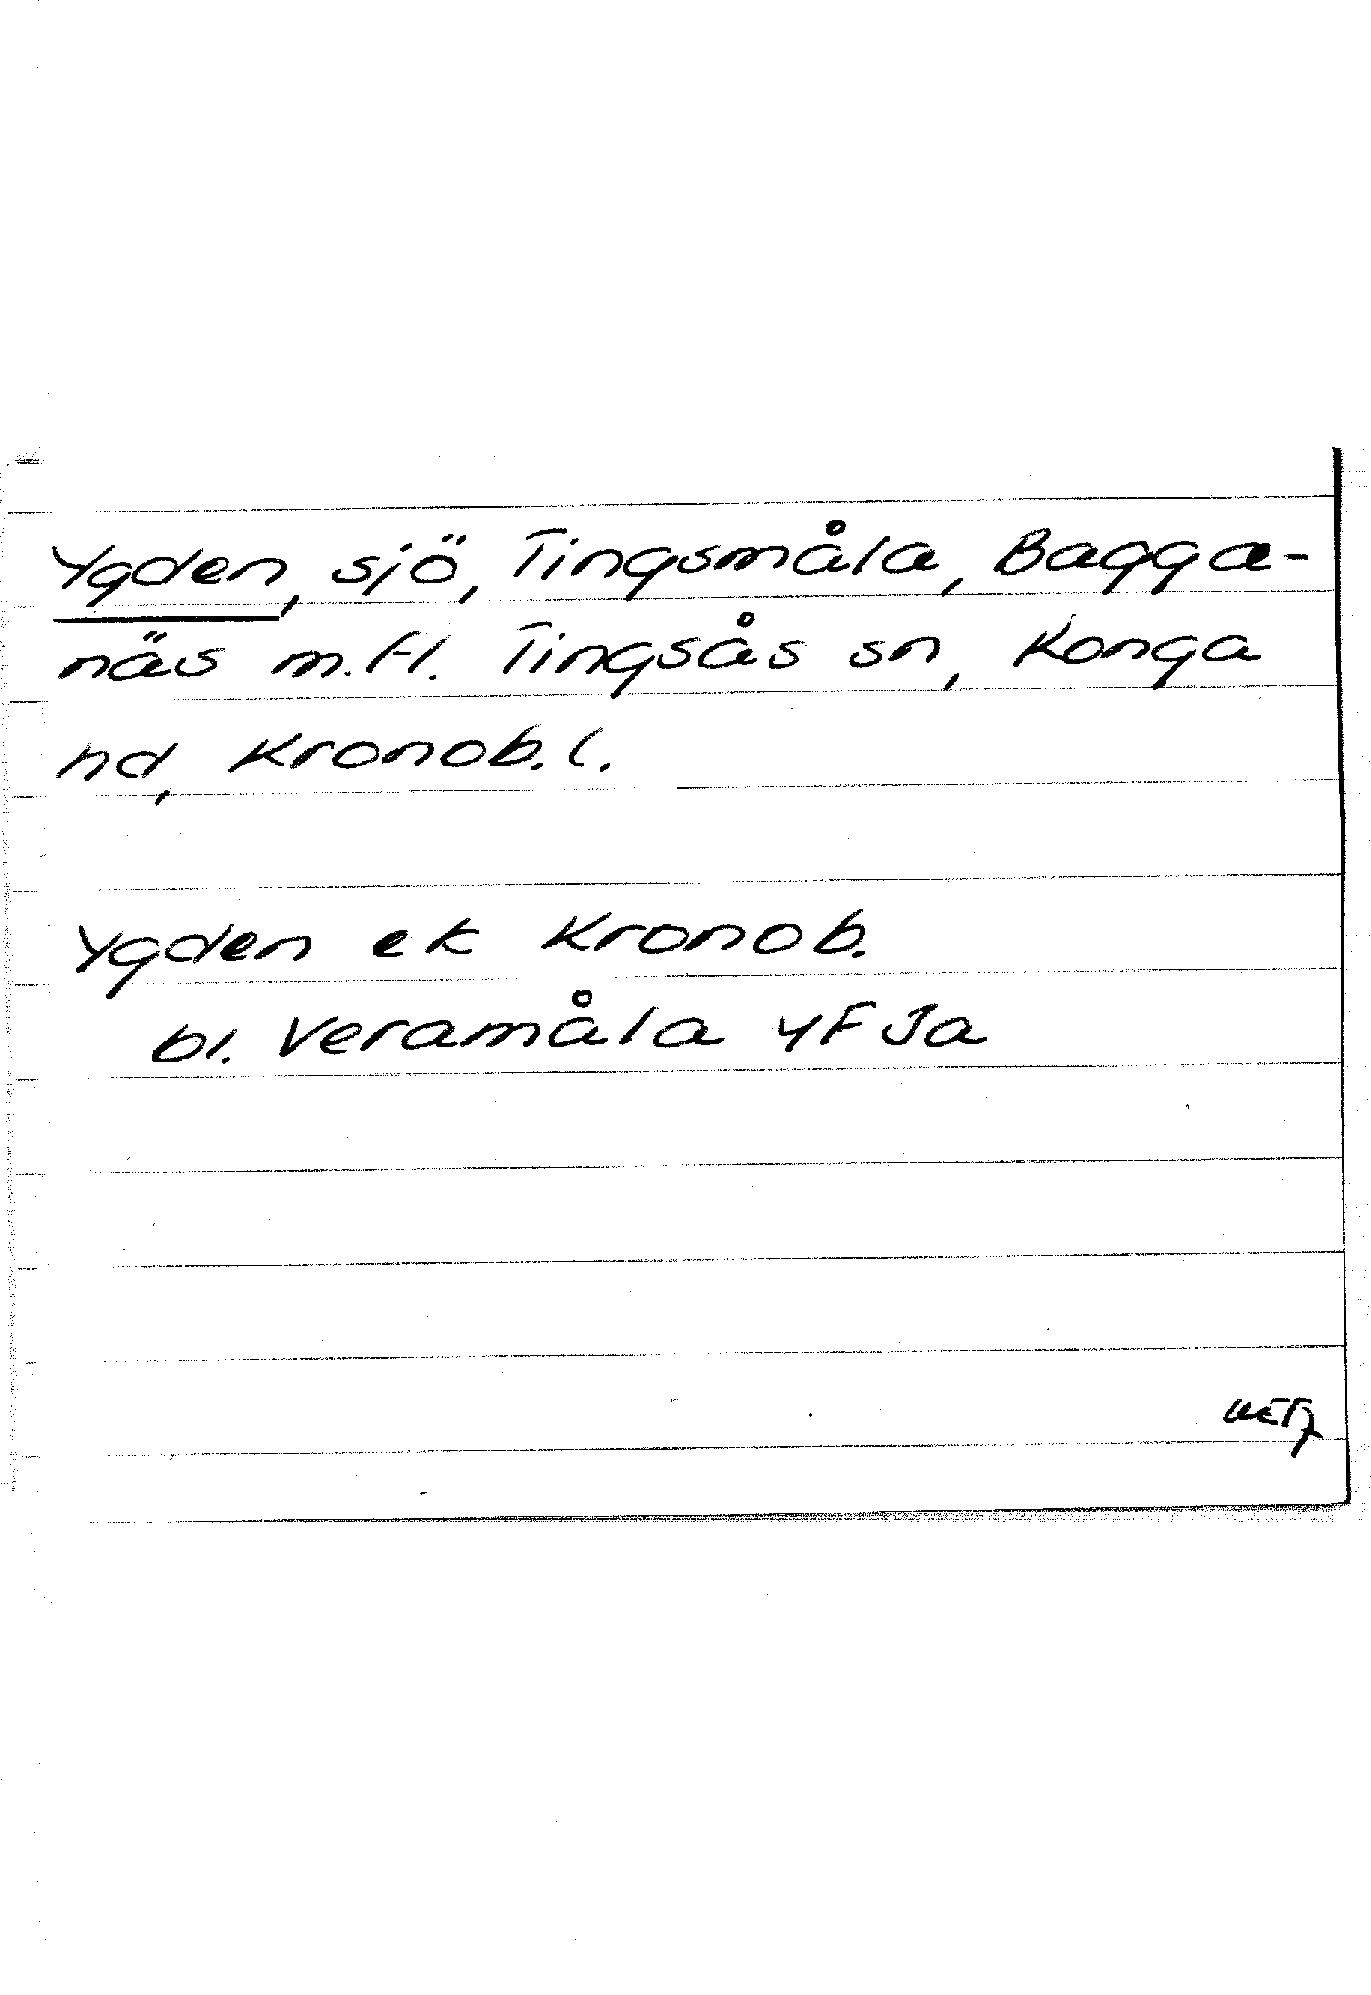 Ygden, sjö, Tingsmåla, Bagga-
näs m.fl. Tingsås sn, Konga
hd, Kronob. l.
Ygden ek Kronob.
bl. Veramåla 4F Ja